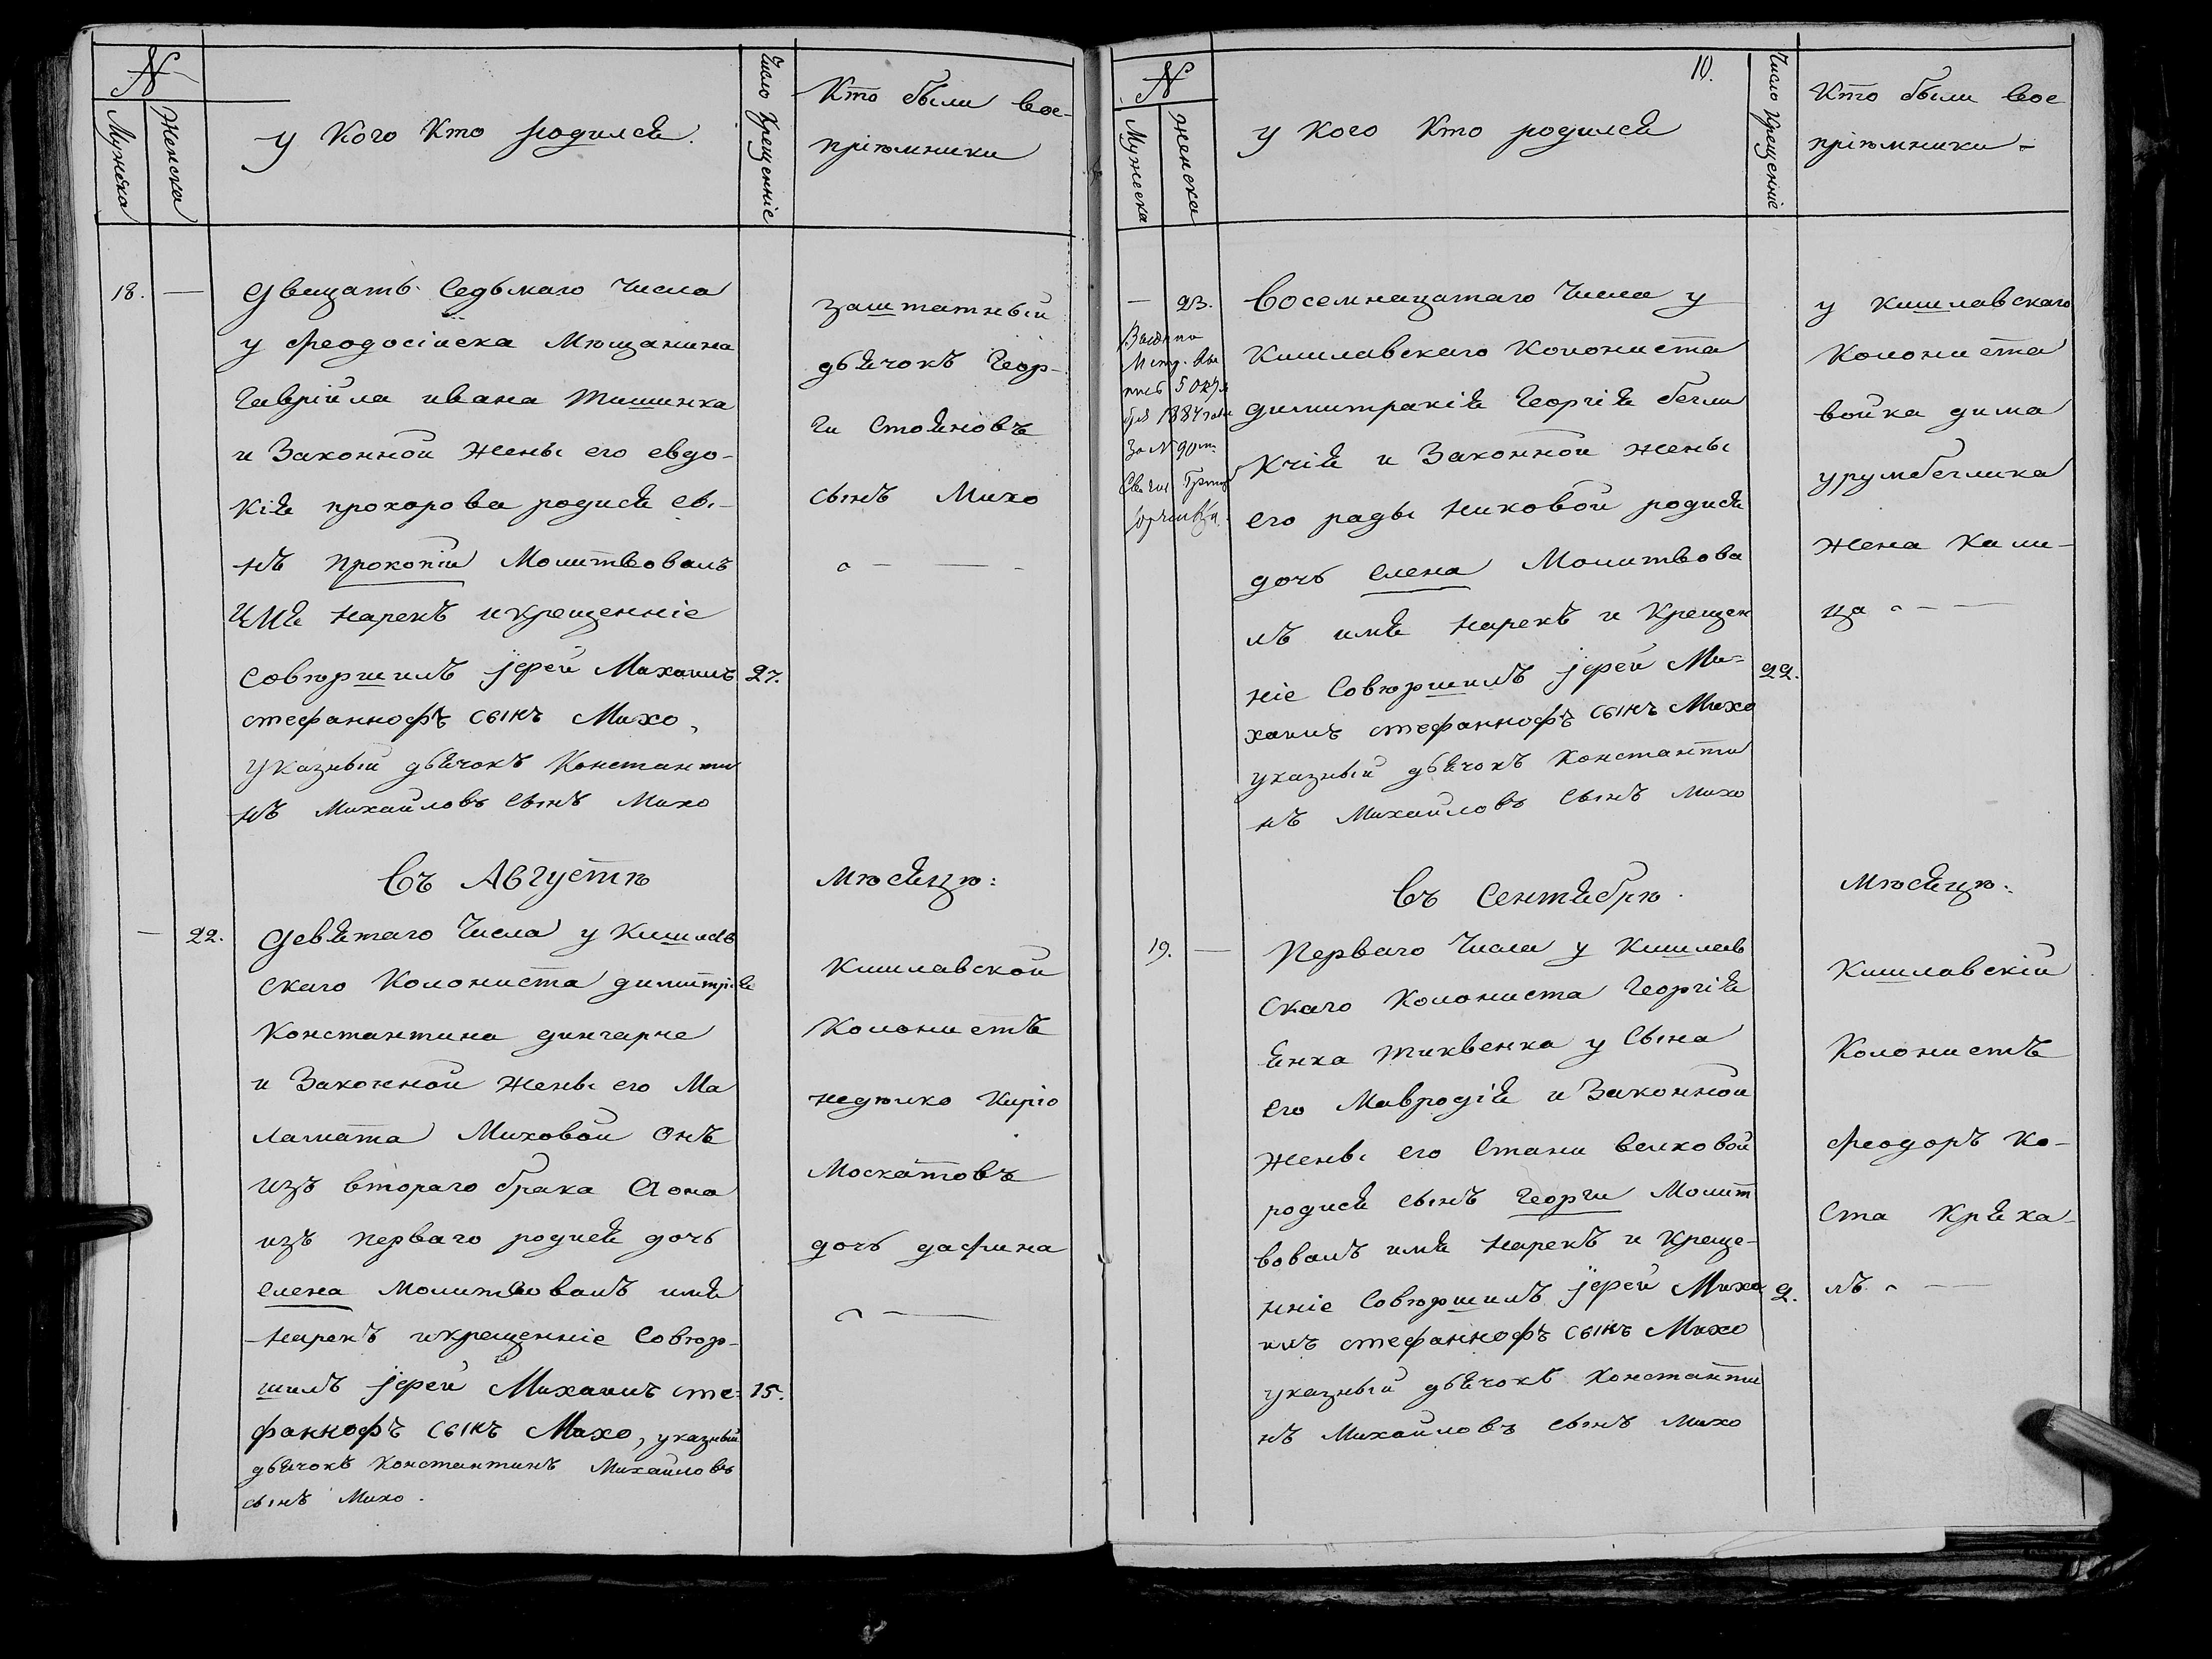 N
Мужеска
Женска
у Кого Кто родился.
Число Крещенніе
Кто были вос-
пріѣмники
18. —
Двацать Седьмаго Числа
у Феодосійска Мѣщанина
Гаврійла ивана тишинка
и Законной жены его евдо-
кія прохорова родися сы-
нъ Прокопій Молитвовалъ
имя нарекъ икрещенніе
Совѣршилъ іерей Михаилъ
стефанноФъ сынъ Михо,
указный дьячокъ Константи
нъ Михайловъ сынъ Михо
27.
заштатный
дьячокъ Геор-
ги Стояновъ
сынъ Михо
Въ Августѣ
мѣсяцѣ:
— 22.
Девятаго Числа у Кишлав
скаго Колониста димитрія
Константина динчарне
и Законной жены его Ма
ламата Миховой Онъ
изъ втораго брака Аона
изъ перваго родися дочь
елена Молитвовалъ имя
нарекъ икрещенніе Совѣр-
шилъ іерей Михаилъ сте-
фанноФъ сынъ Михо, указный
дьячокъ Константинъ Михайловъ
сынъ Михо.
15.
Кишлавской
Колонистъ
недѣлко Киріо
Москатовъ
дочь дафина
10.
N
Мужеска
женска
у кого Кто родился
Число Крещенніе
Кто были вос
пріѣмники-
— 23.
1884 года
За N 90
Восемнацатаго Числа у
Кишлавскаго Колониста
димитракія Георгія бегли
кчія и Законной жены
его рады никовой родися
дочь елена Молитвова
лъ имя нарекъ и Крещен
ніе Совѣршилъ іерей Ми-
хаилъ стефанноФъ сынъ Михо
указный дьячокъ Константи
нъ Михайловъ сынъ Михо
22.
у кишлавскаго
Колониста
войка дима
урумбеглика
жена кали-
ца
Въ Сентябрѣ.
мѣсяцѣ:
19. —
Перваго Числа у Кишлав
скаго Колониста Георгія
янка тиквенка у сына
его Мавродія и Законной
жены его Стани велковой
родися сынъ Георги Молит
вовалъ имя нарекъ и Креще-
нніе Совѣршилъ іерей Миха
илъ стефанноФъ сынъ Михо
указный дьячокъ Константи
нъ Михайловъ сынъ Михо
2.
Кишлавскій
Колонистъ
Феодоръ Ко-
ста Кряка-
лъ